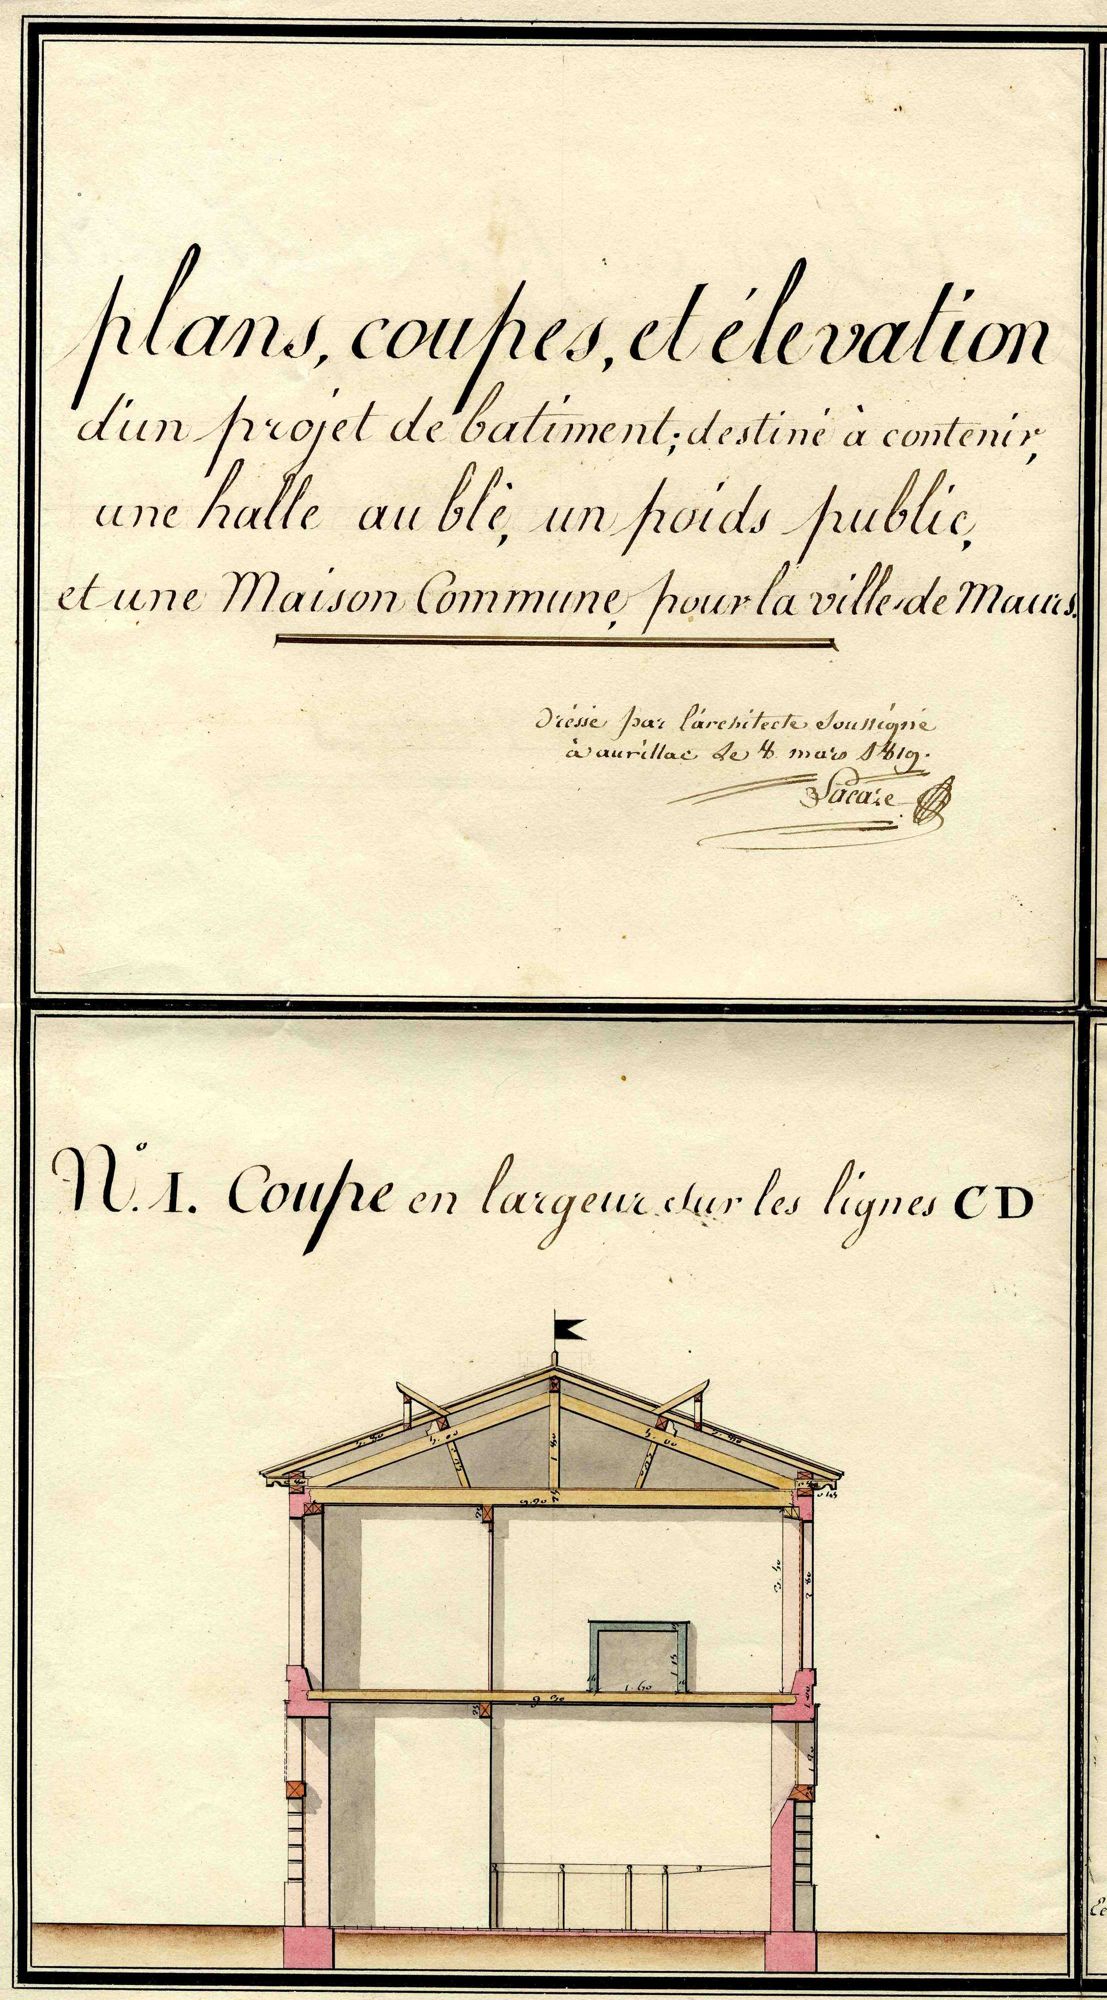 plans, coupes, et élevation
d'un projet de batiment; destiné à contenir,
une halle au blé, un poids public,
et une Maison Commune, pour la ville de Maurs.
Dréssé par l'architecte soussigné
à aurillac le 8 mars 1819.
Lacaze
N.° 1. Coupe en largeur sur les lignes CD
5.00
1.80
5.00
9.90
1.60
1.15
1.00